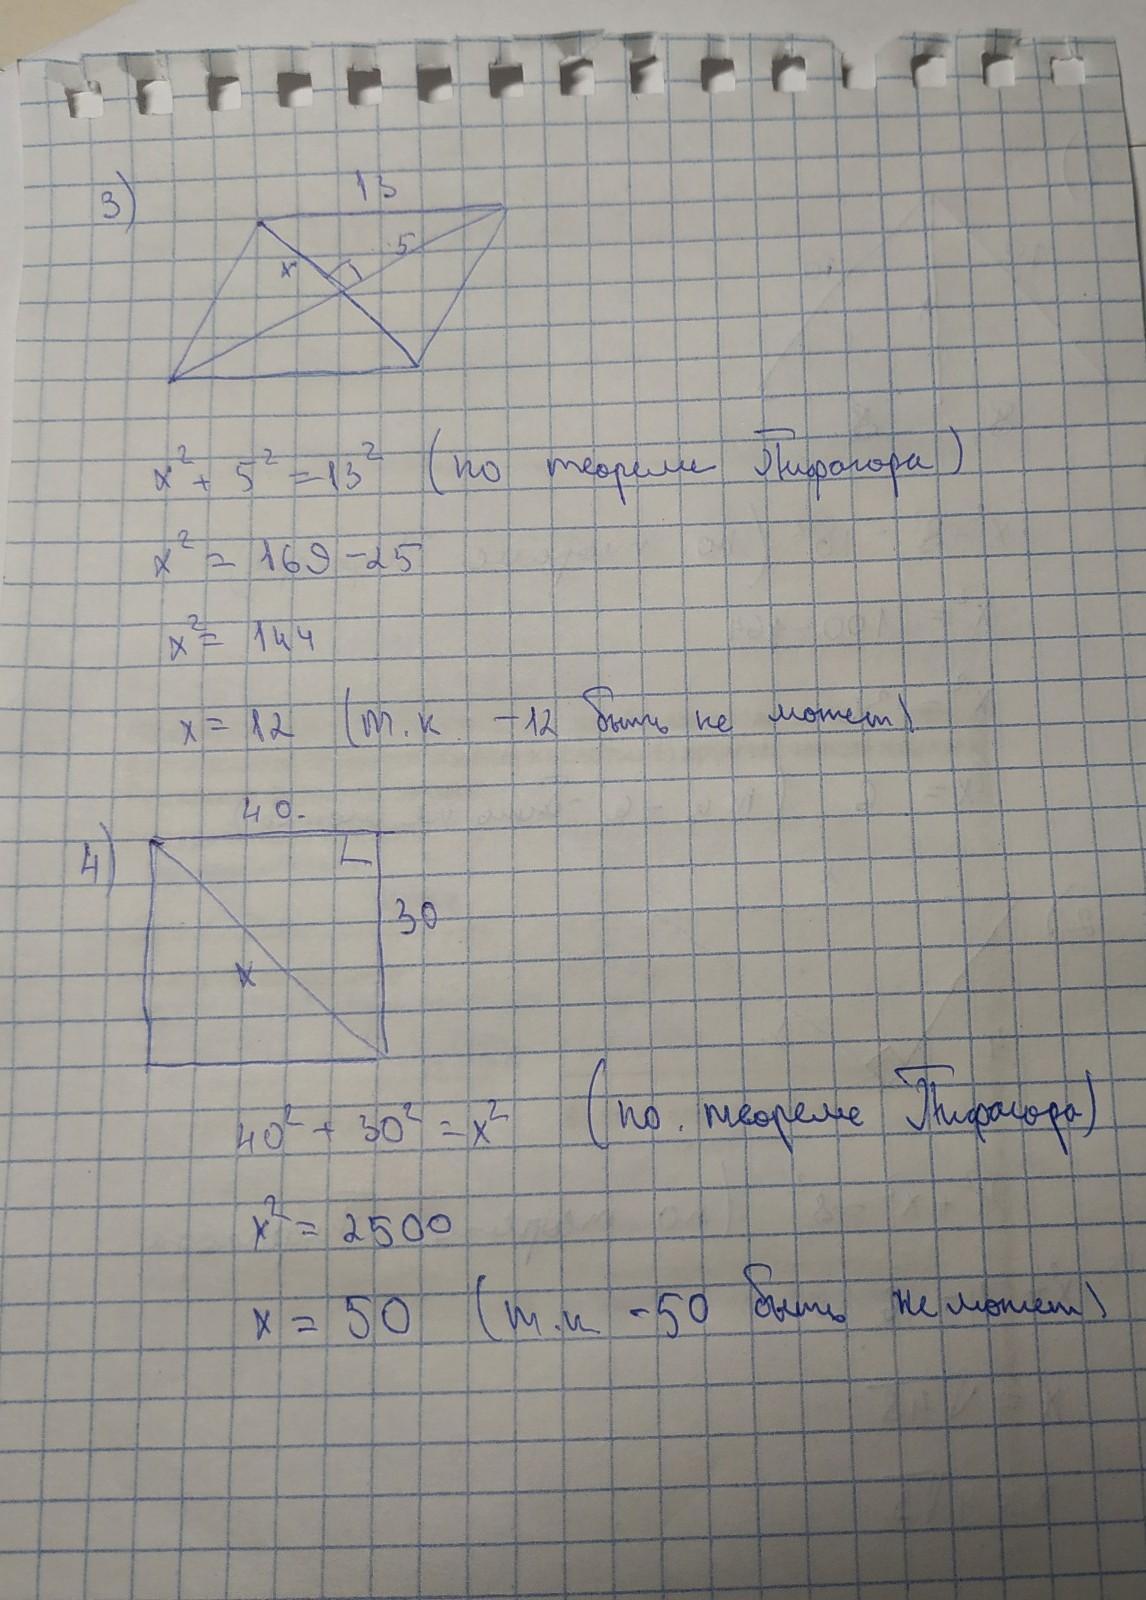 3)
13
5
x
x² + 5² = 13² (по теореме Пифагора)
x² = 169 - 25
x² = 144
x = 12 (т.к. -12 быть не может)
4)
40.
30
x
40² + 30² = x² (по. теореме Пифагора)
x² = 2500
x = 50 (т.к -50 быть не может)